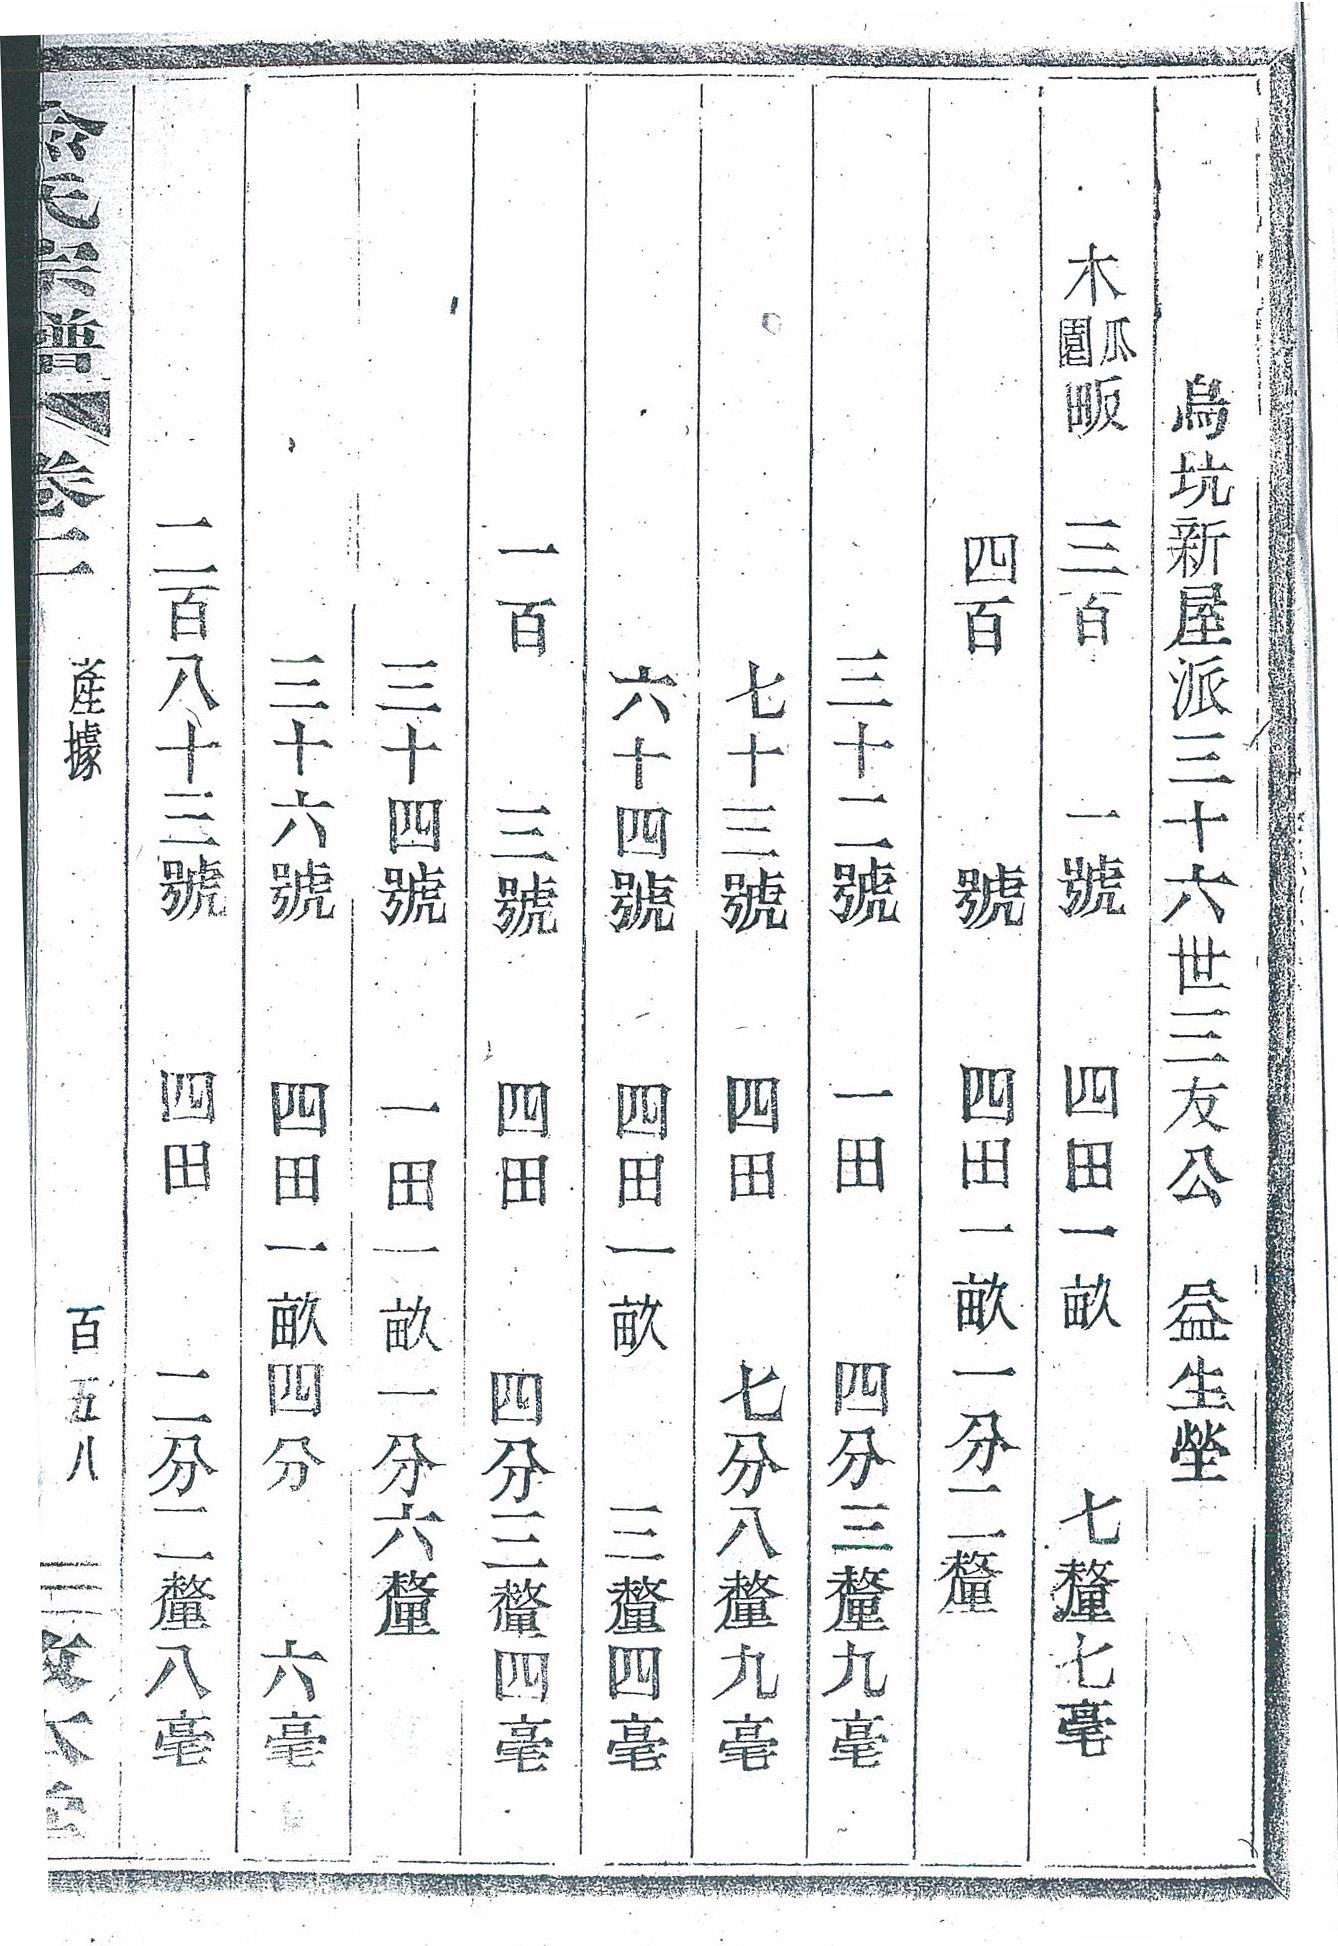 烏坑新屋派三十六世三友公 益生塋
木瓜園畈 三百 一號 四田一畝 七釐七毫
四百 號 四田一畝一分二釐
三十二號 一田 四分三釐九毫
七十三號 四田 七分八釐九毫
六十四號 四田一畝 三釐四毫
一百 三號 四田 四分三釐四毫
三十四號 一田一畝一分六釐
三十六號 四田一畝四分 六毫
二百八十三號 四田 二分二釐八毫
氏宗譜 卷二 產據 百五八